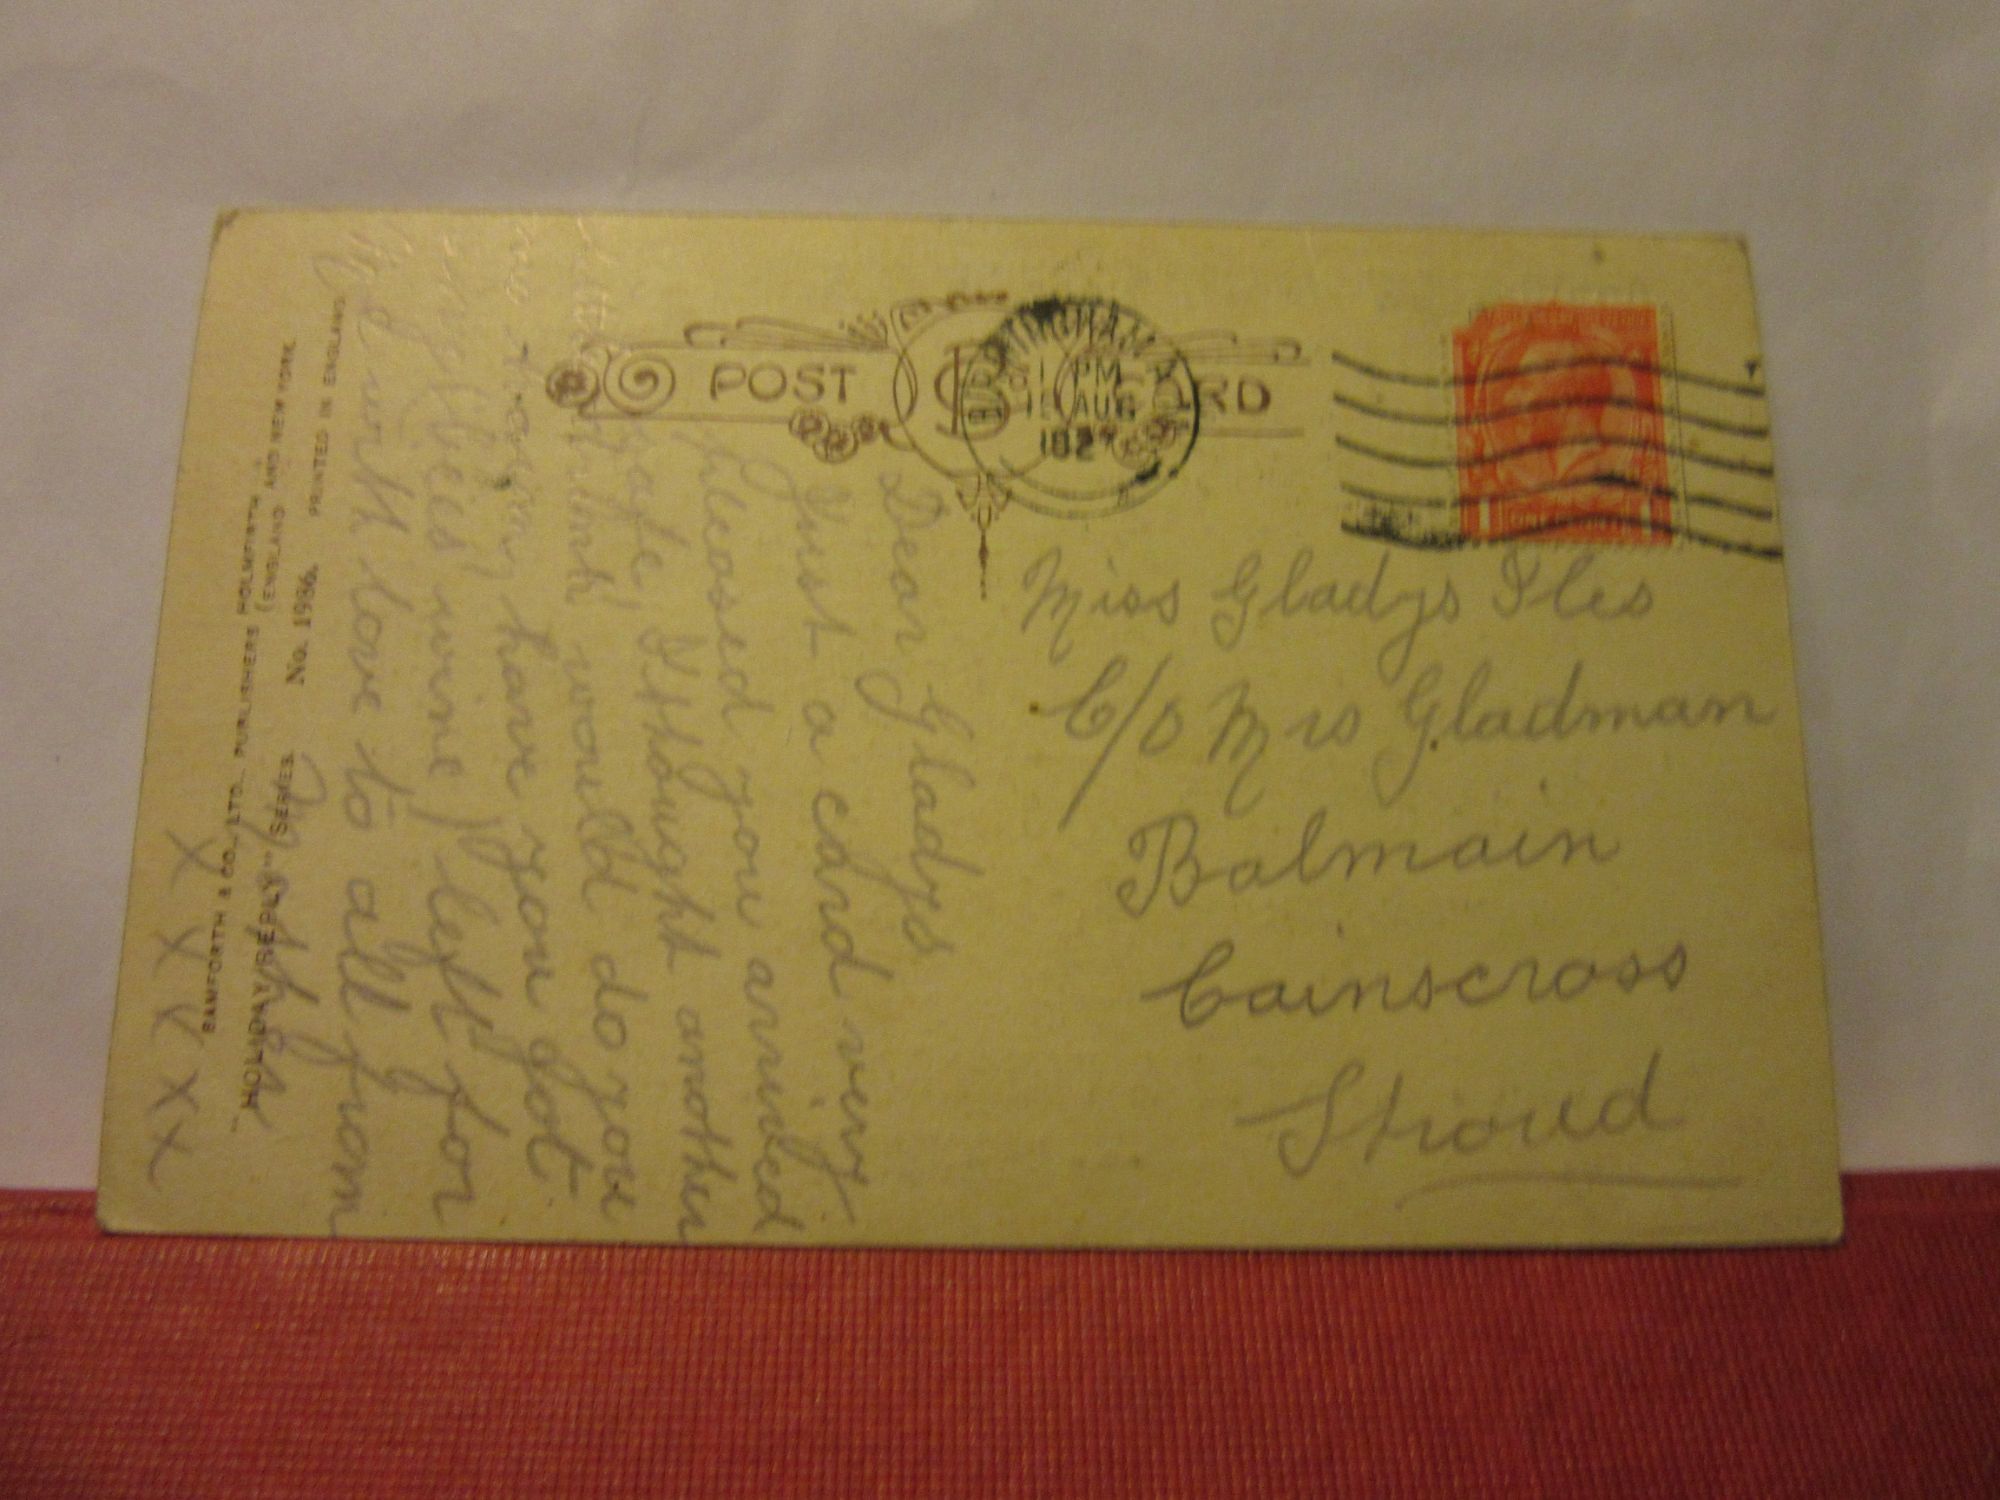 POST CARD
BIRMINGHAM
1 PM
AUG
192
ONE PENNY
Miss Gladys Iles
C/o Mrs Gladman
Balmain
Cainscross
Stroud
Dear Gladys
Just a card very
pleased you arrived
safe, I thought another
would do you
have you got
left for
with love to all from
Mother
X X X X X
BAMFORTH & CO., LTD., PUBLISHERS HOLMFIRTH
(ENGLAND) AND NEW YORK.
"HOLIDAY REPLY" SERIES. No. 1986. PRINTED IN ENGLAND.